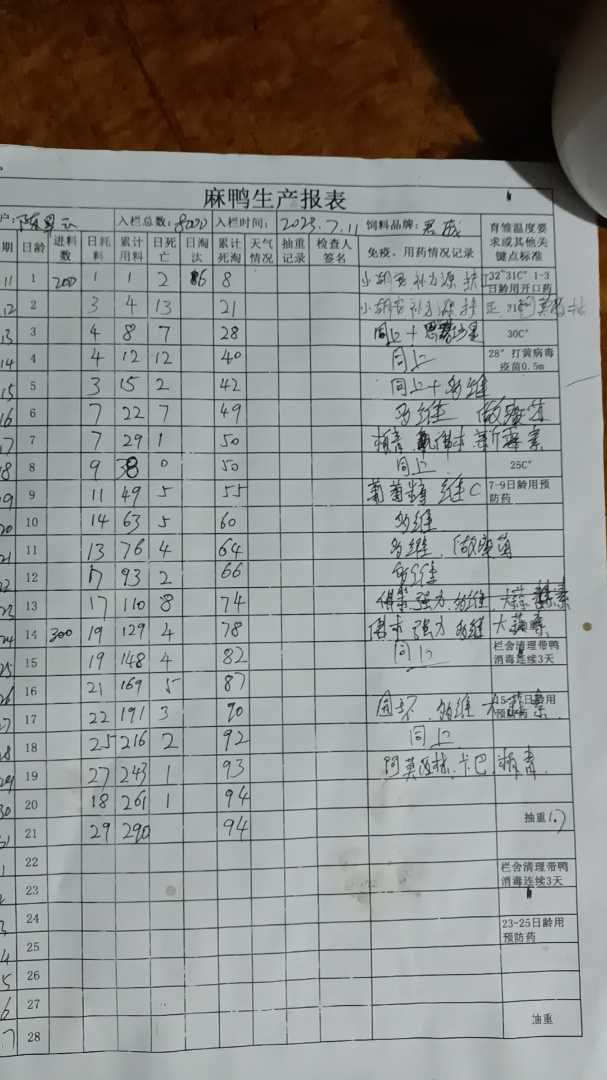 麻鸭生产报表
入栏总数: 8000 入栏时间: 2023.7.11 饲料品牌:
期 日龄 进料数 日耗料 累计用料 日死亡 日淘汰 累计死淘 天气情况 抽重记录 检查人签名 免疫、用药情况记录 育雏温度要求或其他关键点标准
11 1 200 1 1 2 6 8 32~31C° 1-3日龄用开口药
12 2 3 4 13 21
13 3 4 8 7 28 同上+ 30C°
14 4 4 12 12 40 同上 28° 打黄病毒疫苗0.5m
15 5 3 15 2 42 同上+多维
16 6 7 22 7 49 多维 做疫苗
17 7 7 29 1 50
18 8 9 38 0 50 同上 25C°
19 9 11 49 5 55 葡萄糖 维C 7-9日龄用预防药
20 10 14 63 5 60 多维
21 11 13 76 4 64 多维、做疫苗
22 12 17 93 2 66 多维
23 13 17 110 8 74 强力 多维 大蒜素
24 14 300 19 129 4 78 强力 多维 大蒜素
25 15 19 148 4 82 同上 栏舍清理带鸭消毒连续3天
26 16 21 169 5 87
27 17 22 191 3 90 多维 大蒜素 15- 日龄用预防药
28 18 25 216 2 92 同上
29 19 27 243 1 93 阿莫西林、卡巴
30 20 18 261 1 94
31 21 29 290 94 抽重1.7
1 22
2 23 栏舍清理带鸭消毒连续3天
3 24
4 25 23-25日龄用预防药
5 26
6 27
7 28 抽重